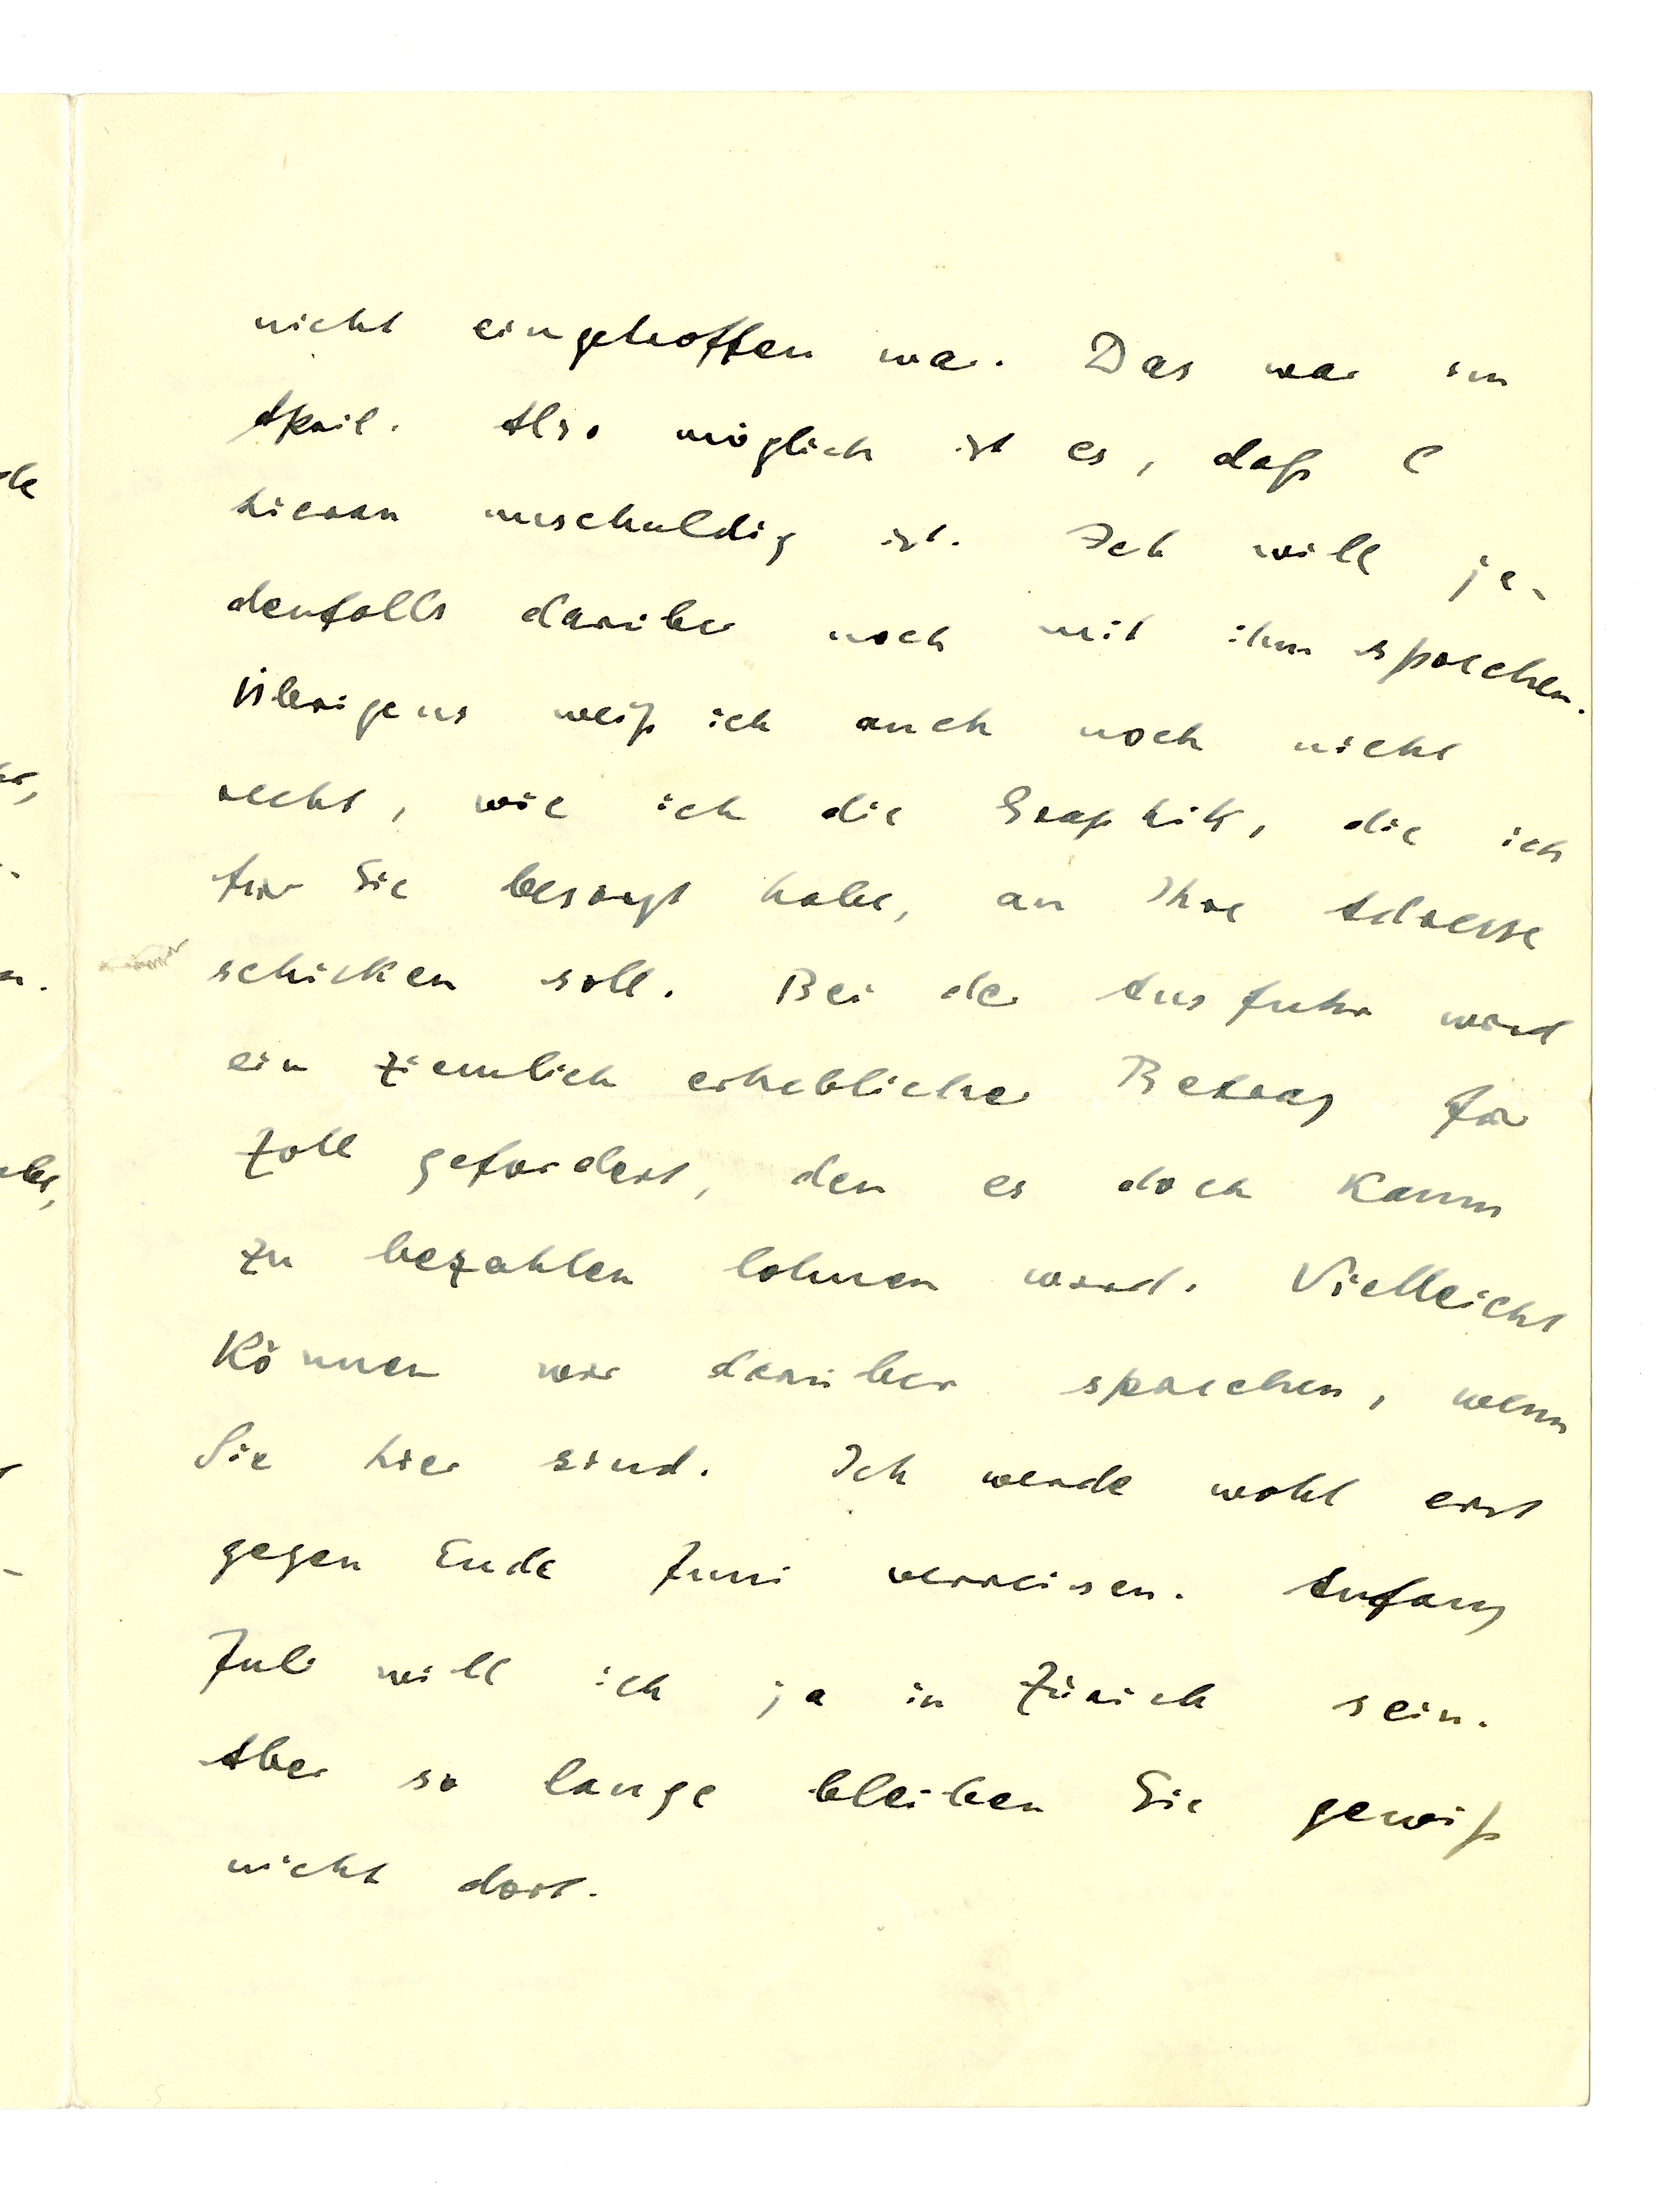 nicht eingetroffen war. Das war im
April. Also möglich ist es, daß er
hieran unschuldig ist. Ich will je-
denfalls darüber noch mit ihm sprechen.
Übrigens weiß ich auch noch nicht
recht, wie ich die Graphik, die ich
für Sie besorgt habe, an Ihre Adresse
schicken soll. Bei der Ausfuhr wird
ein ziemlich erheblicher Betrag für
Zoll gefordert, den es doch kaum
zu bezahlen lohnen wird. Vielleicht
können wir darüber sprechen, wenn
Sie hier sind. Ich werde wohl erst
gegen Ende Juni verreisen. Anfang
Juli will ich ja in Zürich sein.
Aber so lange bleiben Sie gewiß
nicht dort.